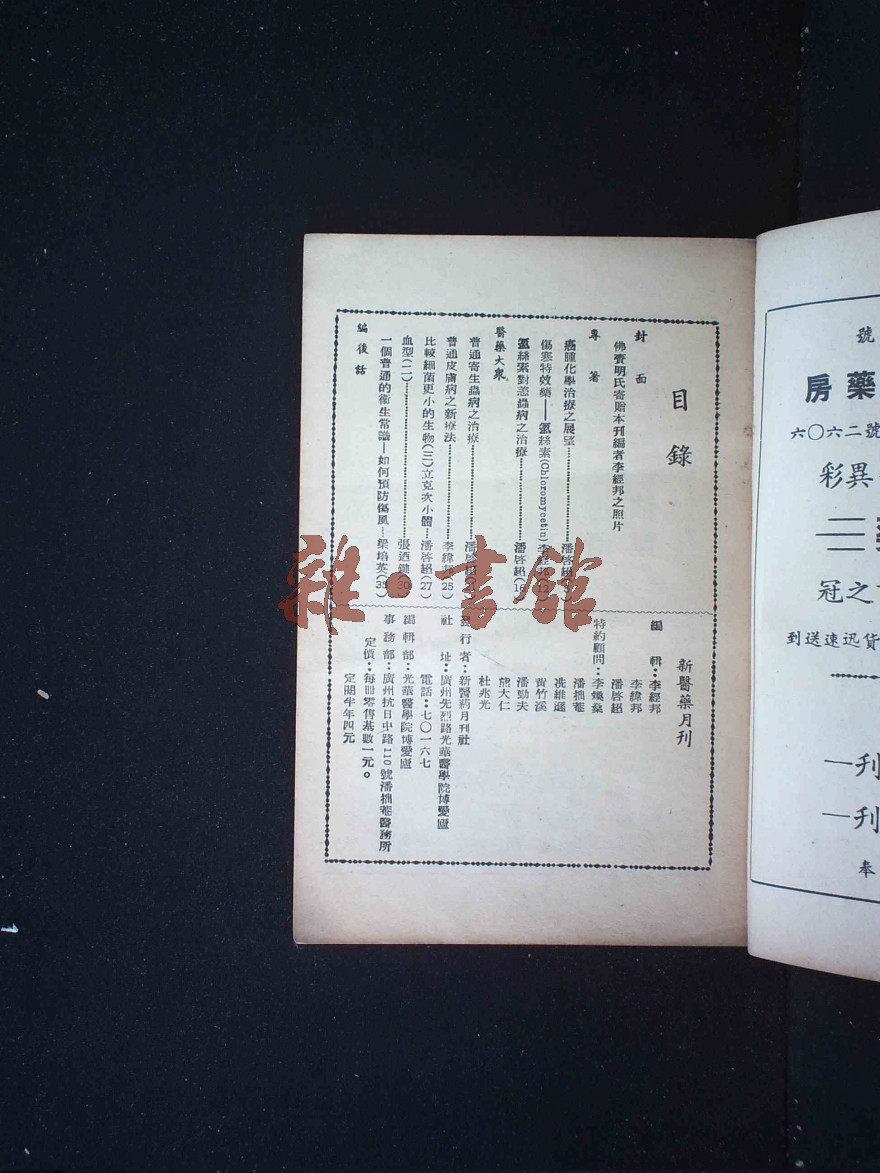 目錄
封面
佛賚明氏寄贈本刊編者李經邦之照片
專著
癌腫化學治療之展望………潘啓紹
傷寒特效藥——氯絲素(Chloromycetin)李經邦(12)
氯絲素對恙蟲病之治療………潘啓紹(16)
醫藥大衆
普通寄生蟲病之治療………潘啓紹
普通皮膚病之新療法………李緯邦(25)
比較細菌更小的生物(三)立克次小體…潘啓紹(27)
血型(二)………張迺鍵(30)
一個普通的衞生常識—如何預防傷風…梁培英(35)
編後話
新醫藥月刊
編輯：李經邦
李緯邦
潘啓紹
特約顧問：李煥燊
潘拙菴
冼維通
黃竹溪
潘勁夫
熊大仁
杜兆光
發行者：新醫葯月刊社
社址：廣州先烈路光華醫學院博愛廬
電話：七〇一六七
編輯部：光華醫學院博愛廬
事務部：廣州抗日中路110號潘拙菴醫務所
定價：每冊零售基數一元。
定閱半年四元
號
房藥
六〇六二號
彩異
冠之
到送速迅貨
一刊
一刊
奉
雜·書館